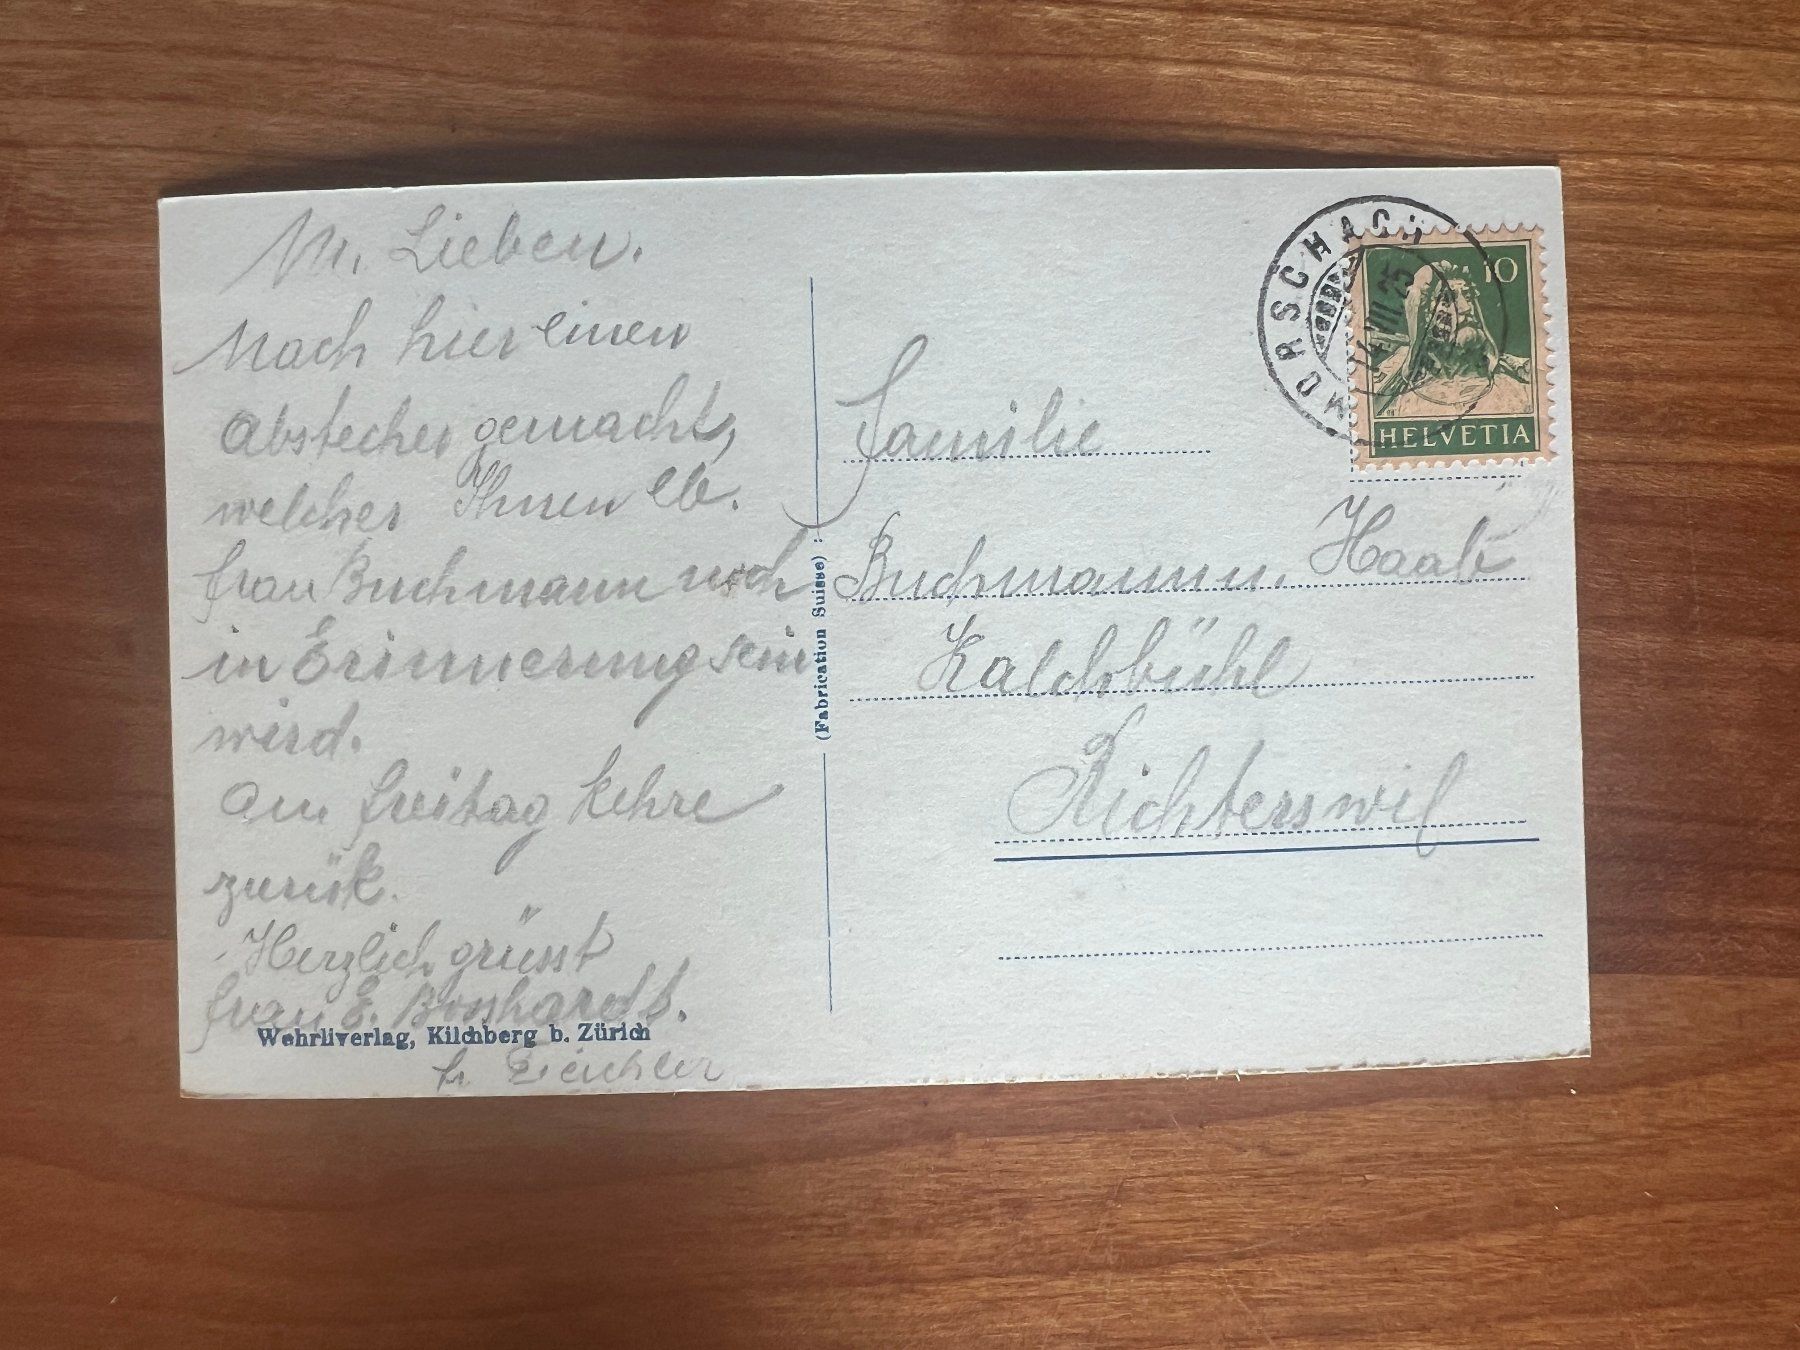 M. Lieben.
Nach hier einen
Abstecher gemacht,
welcher Ihnen lb.
Frau Buchmann noch
in Erinnerung sein
wird.
Am Freitag kehre
zurük.
Herzlich grüsst
Frau E. Bosshardt.
Wehrliverlag, Kilchberg b. Zürich
(Fabrication Suisse)
MORSCHACH
14.VII.25
10
HELVETIA
Familie
Buchmann, Haab
Kalchbühl
Richterswil